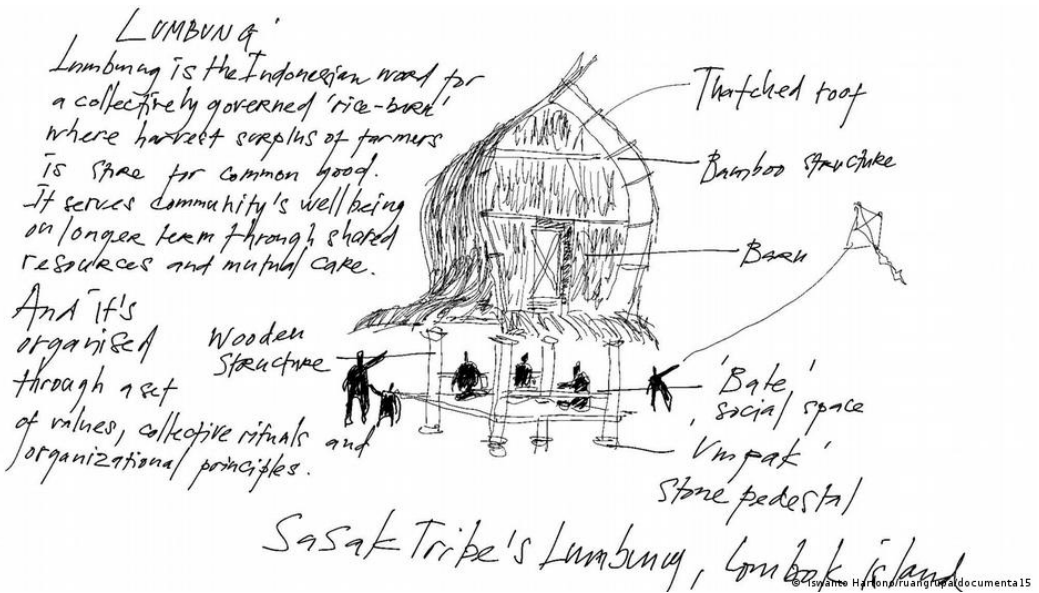 LUMBUNG
Lumbung is the Indonesian word for
a collectively governed 'rice-barn'
where harvest surplus of farmers
is store for common good.
It serves community's well being
on longer term through shared
resources and mutual care.
And it's
organised
through a set
of values, collective rituals and
organizational principles.
Thatched roof
Bamboo structure
Barn
Wooden
structure
'Bale'
social space
'Umpak'
stone pedestal
Sasak Tribe's Lumbung, Lombok island
© Iswanto Hartono/ruangrupa/documenta15